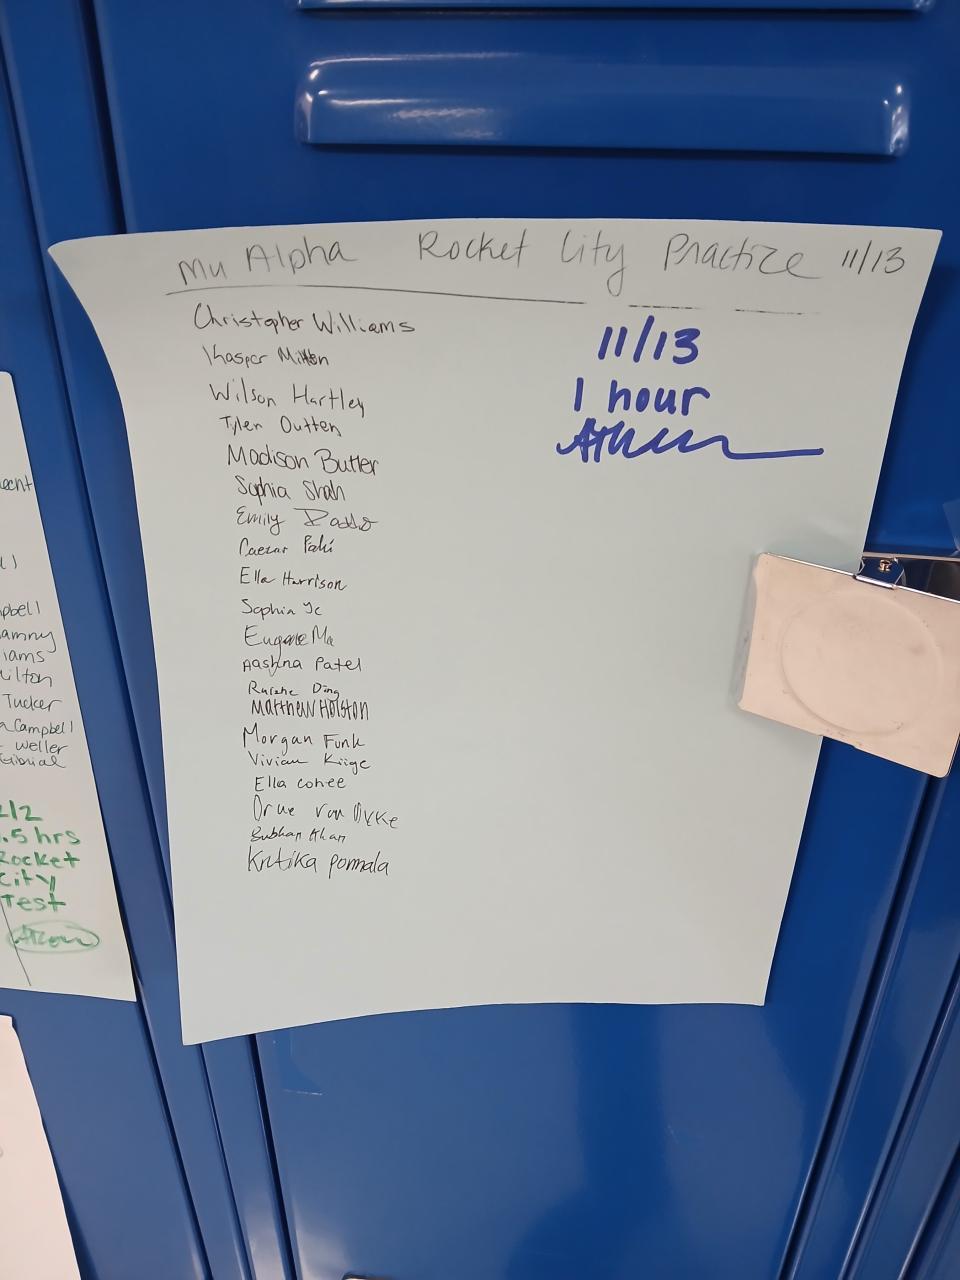 Mu Alpha Rocket City Practice 11/13
Christopher Williams
Kasper Milton
Wilson Hartley
Tyler Outten
Madison Butler
Sophia Shah
Emily
Caesar
Ella Harrison
Sophia Ye
Eugene Ma
Aashna Patel
Ruizhe Ding
Matthew Holston
Morgan Funk
Vivian
Ella Cohee
Subhan Khan
Kritika Pormala
11/13
1 hour
Tucker
Campbell
Weller
.5 hrs
Rocket
City
Test